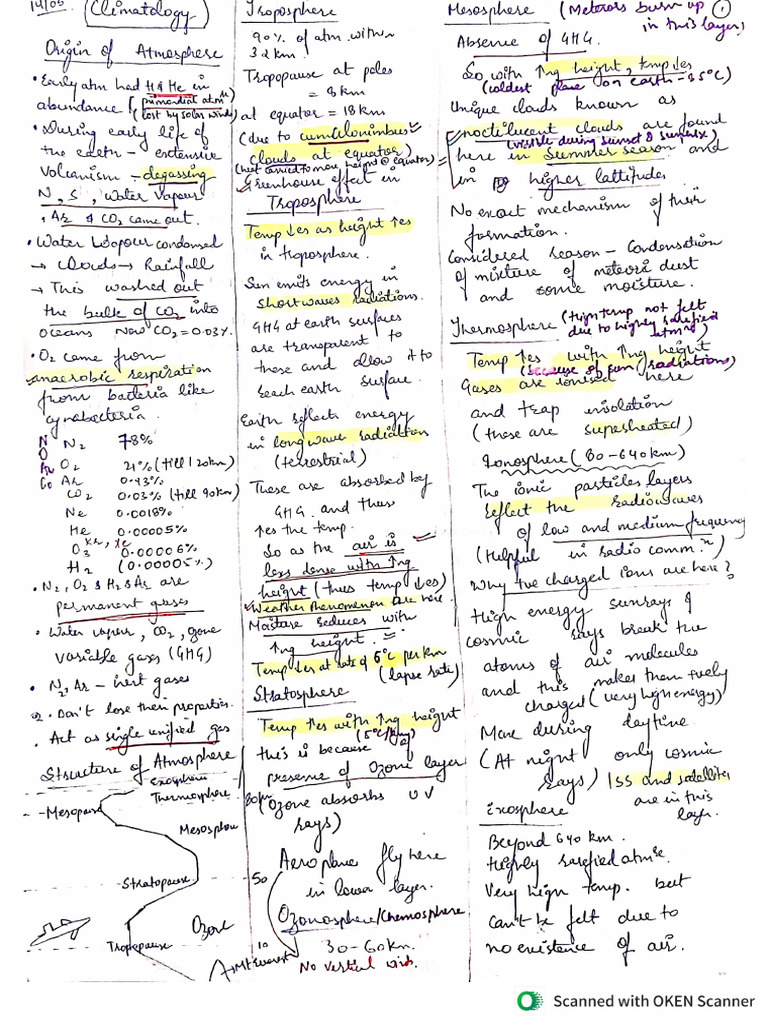 14/05
Climatology
Origin of Atmosphere
• Early atm had H & He in
abundance (primordial atm
(lost by solar winds)
• During early life of
the earth - extensive
volcanism - degassing
N, S, Water vapour
, Ar & CO2 came out.
• Water vapour condensed
→ clouds → Rainfall
→ This washed out
the bulk of CO2 into
oceans Now CO2 = 0.03%.
• O2 came from
anaerobic respiration
from bacteria like
cynobacteria.
N N2 78%
O
Ar O2 21% (till 120km)
Co Ar 0.93%
CO2 0.03% (till 90km)
Ne 0.0018%
He 0.00005%
Kr, Xe
O3 0.00006%
H2 (0.00005%)
• N2, O2 & H2 & Ar are
permanent gases
• Water vapour, CO2, ozone
variable gases (GHG)
• N2, Ar - inert gases
• Don't lose their properties.
• Act as single unified gas
Structure of Atmosphere
Exosphere
Thermosphere
Mesopause
80km
Mesosphere
Stratopause
50
Ozone
Tropopause
10
Mt Everest
Troposphere
90% of atm within
32 km.
Tropopause at poles
= 8 km
at equator = 18 km
(due to cumulonimbus
clouds at equator)
(heat carried to more height @ equator)
Greenhouse effect in
Troposphere
Temp ↓es as height ↑es
in troposphere.
Sun emits energy in
shortwaves radiations.
GHG at earth surfaces
are transparent to
these and allow it to
reach earth surface.
Earth reflects energy
in long wave radiation
(terrestrial)
These are absorbed by
GHG and thus
↑es the temp.
So as the air is
less dense with ↑ng
height (thus temp ↓es)
Weather phenomenon are here.
Moisture reduces with
↑ng height.
Temp ↓es at rate of 6°C per km
(lapse rate)
Stratosphere
Temp ↑es with ↑ng height
(5°C/km)
this is because of
presence of Ozone layer
(Ozone absorbs UV
rays)
Aeroplane fly here
in lower layer.
Ozonosphere/Chemosphere
30-60km.
No vertical winds.
Mesosphere (Meteors burn up
in this layer)
1
Absence of GHG.
So with ↑ng height, temp ↓es
(coldest place on earth -85°C)
Unique clouds known as
noctilucent clouds are found
(visible during sunset & sunrise)
here in summer season and
in higher lattitudes
No exact mechanism of their
formation.
Considered reason - Condensation
of mixture of meteori dust
and some moisture.
Thermosphere (High temp not felt
due to highly rarefied
atmos)
Temp ↑es with ↑ng height
(because of sun radiations)
Gases are ionised here
and trap insolation
(these are superheated)
Ionosphere (80-640km)
The ionic particles layers
reflect the radiowaves
of low and medium frequency
(Helpful in radio comm.n)
Why +ve charged ions are here?
High energy sunrays &
cosmic rays break the
atoms of air molecules
and this makes them +vely
charged (very high energy)
More during daytime
(At night only cosmic
rays) ISS and satellites
are in this
layer.
Exosphere
Beyond 640 km.
Highly rarefied atmos.
Very high temp. but
can't be felt due to
no existence of air.
Scanned with OKEN Scanner